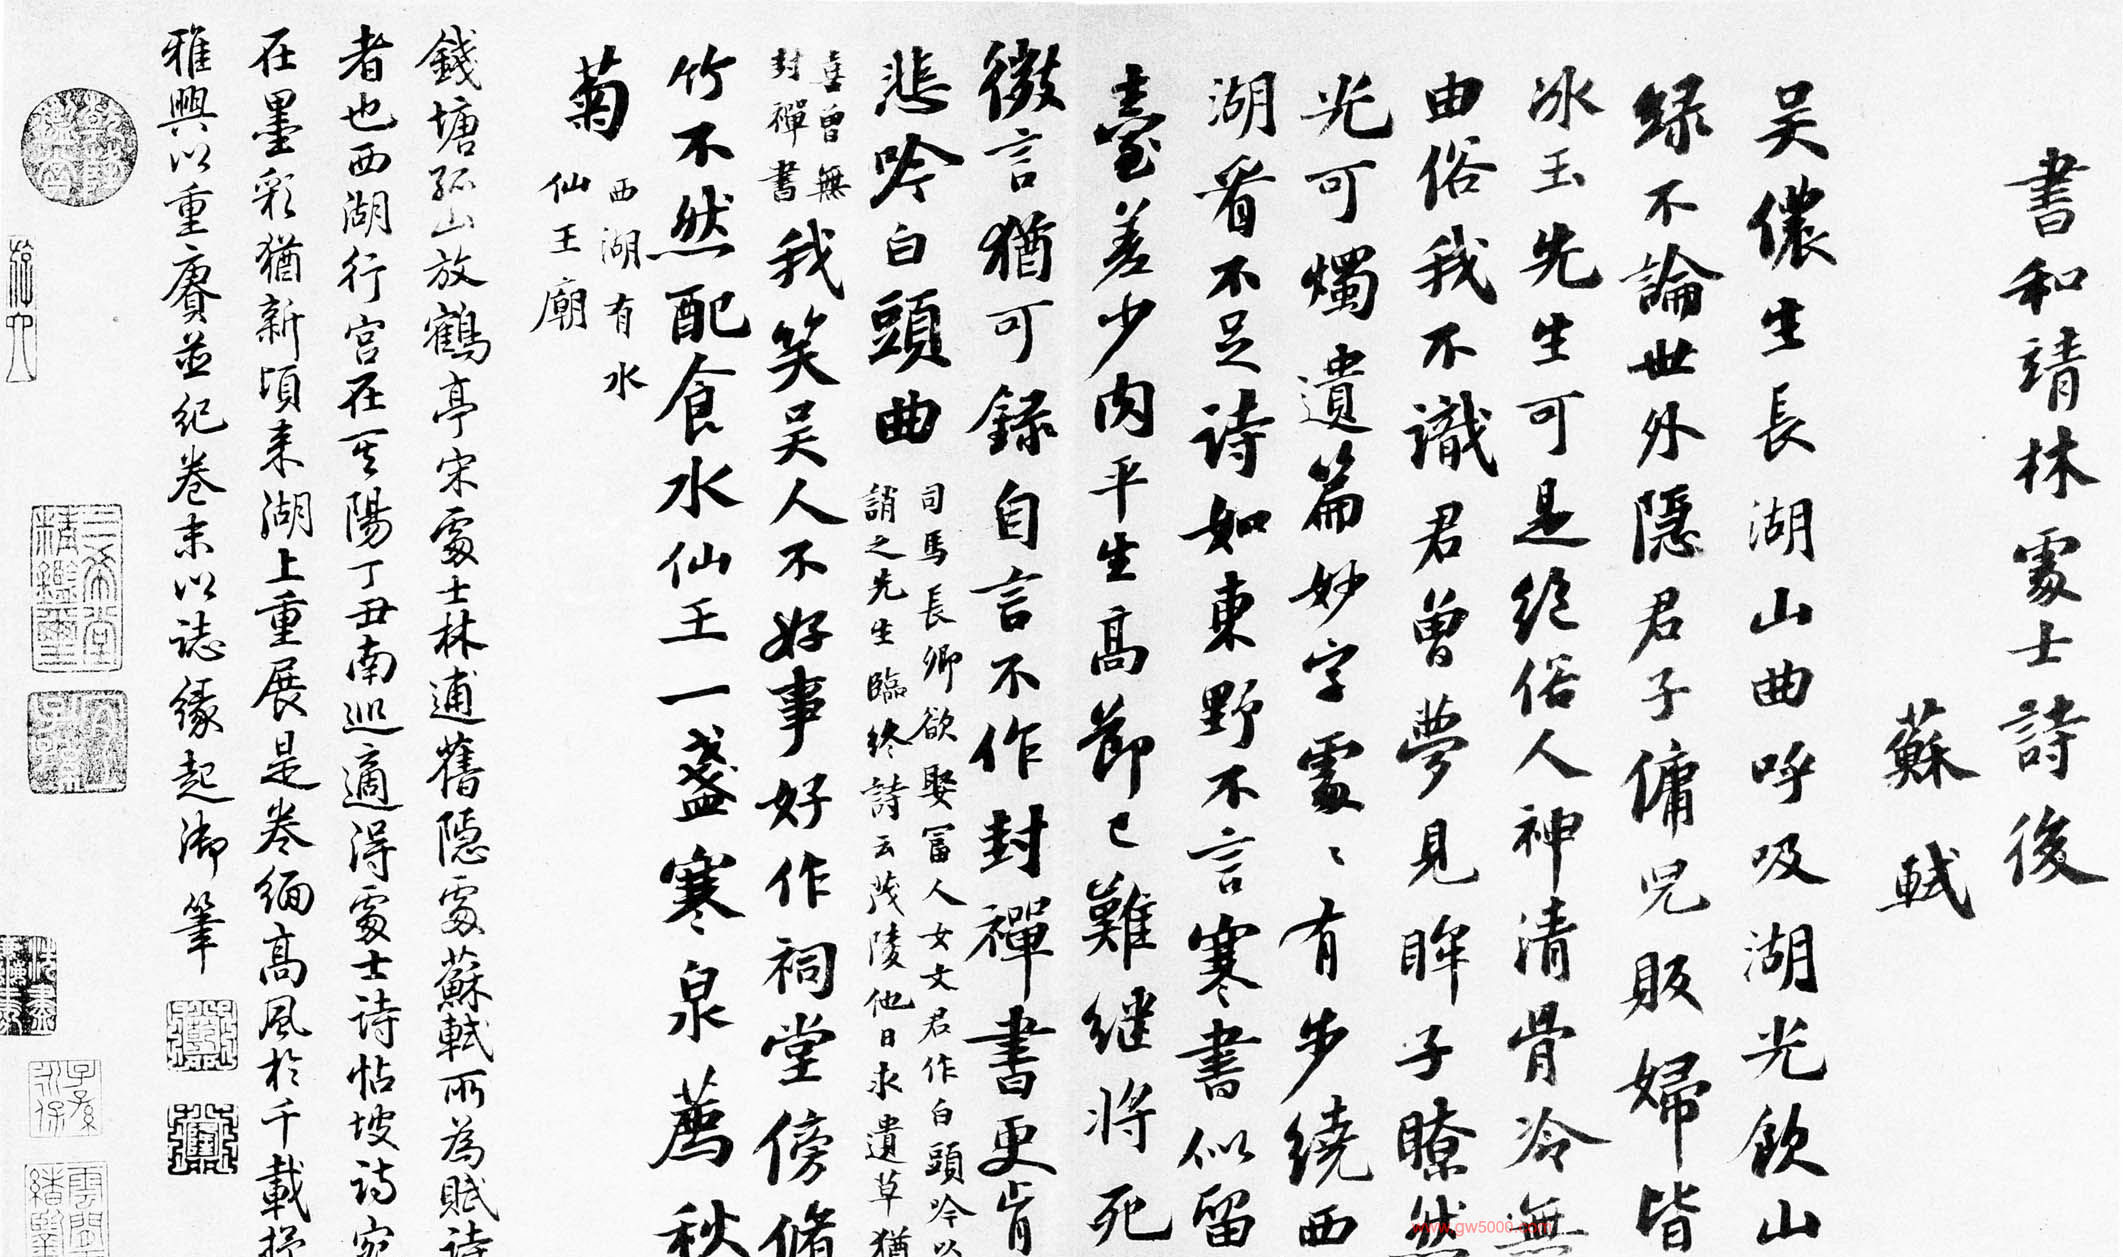 書和靖林處士詩後
蘇軾
吴儂生長湖山曲呼吸湖光飲山
緑不論世外隱君子傭兒販婦皆
冰玉先生可是絕俗人神清骨冷無
由俗我不識君曾夢見眸子瞭然
光可燭遺篇妙字處〻有步繞西
湖看不足詩如東野不言寒書似留
臺差少肉平生高節已難継將死
微言猶可錄自言不作封禪書更肯
悲吟白頭曲
司馬長卿欲娶富人女文君作白頭吟以
誚之先生臨終詩云茂陵他日求遺草猶
喜曾無
封禪書
我笑吴人不好事好作祠堂傍脩
竹不然配食水仙王一盞寒泉薦秋
菊
西湖有水
仙王廟
錢塘孤山放鶴亭宋處士林逋舊隱處蘇軾所為賦詩
者也西湖行宫在其陽丁丑南巡適得處士詩帖坡詩宛
在墨彩猶新頃来湖上重展是卷緬高風於千載抒
雅興以重賡並紀卷末以誌緣起御筆
www.gw5000.com